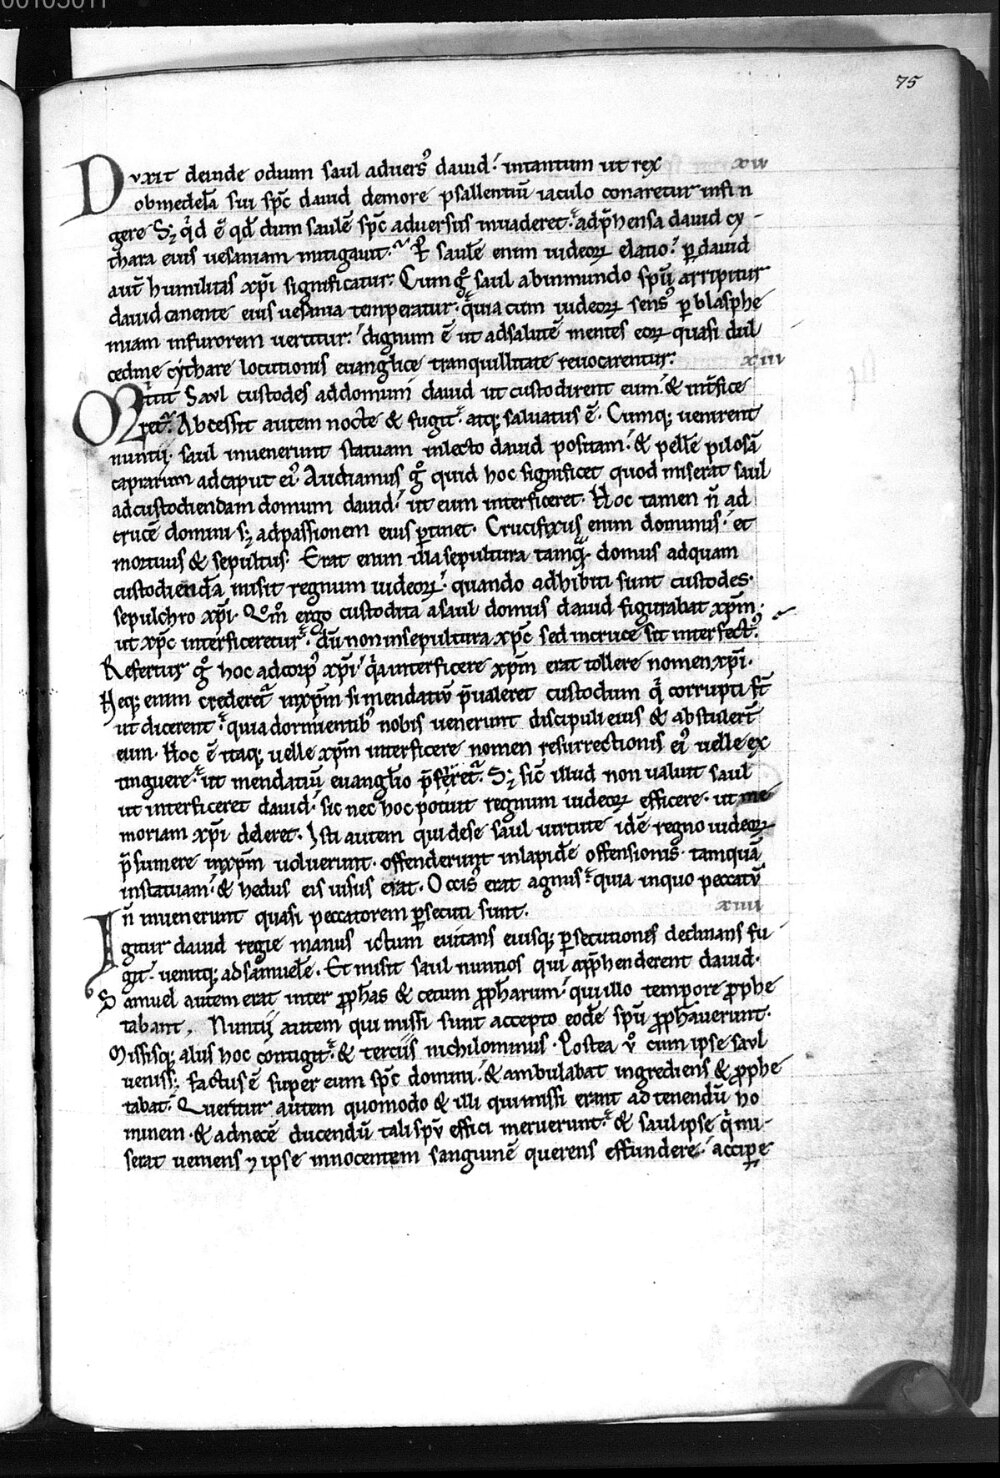 75
Duxit deinde odium saul aduersꝰ dauid. intantum ut rex xii
obmedelā sui sp̄c dauid demore psallentiū iaculo conaretur infin
gere S; qͥd ē qđ dum saulē sp̄c aduersus inuaderet. adp̄hensa dauid cy-
thara eius uesaniam mitigauit. P̱ saulē enim iudeoꝝ elatio. ꝑ dauid
aut̄ humilitas xp̄i significatur. Cum gͦ saul abinmundo sp̄u arripitur
dauid canente eius uesania temperatur. quia cum iudeoꝝ sensꝰ ꝑ blasphe
miam infurorem uertitur. dignum ē ut adsalutē mentes eoꝝ quasi dul
cedine cythare locutionis euanglice tranquillitate reuocarentur. xiii
Misit Saul custodes addomum dauid ut custodirent eum. & int̄fice
ret. Abcessit autem nocte & fugit. atq; saluatus ē. Cumq; uenirent
nuntii. saul inuenerunt statuam inlecto dauid positam. & pellē pilosā
caprarum adcaput eiꝰ. Audiamus gͦ quid hoc significet quod miserat saul
adcustodiendam domum dauid. ut eum interficeret. Hoc tamen n̄ ad
crucē domini s; adpassionem eius ꝑtinet. Crucifixus enim dominus. et
mortuus & sepultus. Erat enim illa sepultura tamq̄ domus adquam
custodiendā misit regnum iudeoꝝ. quando adhibiti sunt custodes.
sepulchro xp̄i. Qm̄ ergo custodita asaul domus dauid figurabat xp̄m.
ut xp̄c interficeretur. dū non insepultura xp̄c sed incruce sit interfectꝰ.
Refertur gͦ hoc adcorpꝰ xp̄i qͣ interficere xp̄m erat tollere nomen xp̄i.
Neq; enim crederet inxp̄m si mendatiū p̄ualeret custodum qͥ corrupti st̄
ut dicerent. quia dormientibꝰ nobis uenerunt discipuli eius & abstulert̄
eum. Hoc ē itaq; uelle xp̄m interficere nomen resurrectionis eiꝰ uelle ex
tinguere. ut mendatiū euanglio p̄ferret. S; sic̄ illud non ualuit saul
ut interficeret dauid. sic nec hoc potuit regnum iudeoꝝ efficere. ut me
moriam xp̄i deleret. Isti autem qui dese saul uirtute idē regno iudeoꝝ
p̄sumere inxp̄m uoluerunt. offenderunt inlapidē offensionis. tamquā
instatuam. & hedus eis uisus erat. Occisꝰ erat agnus. quia inquo peccatū
n̄ inuenerunt quasi peccatorem ꝑsecuti sunt. xiiii
Igitur dauid regie manus ictum euitans eiusq; ꝑsecutiones declinans fu-
git. uenitq; ad samuelē. Et misit saul nuntios qui app̄henderent dauid.
Samuel autem erat inter ꝓph̄as & cetum ꝓph̄arum. qui illo tempore ꝓphe
tabant. Nuntii autem qui missi sunt accepto eodē sp̄u ꝓph̄auerunt.
Missisq; aliis hoc contigit. & tertiis nichilominus. Postea u̇ cum ipse saul
ueniss;. factus ē super eum sp̄c domini. & ambulabat ingrediens & ꝓphe
tabat. Queritur autem quomodo & illi qui missi erant ad tenendū ho
minem. & adnecē ducendū tali sp̄u effici meruerunt. & saul ipse qͥ mi-
serat ueniens ⁊ ipse innocentem sanguinē querens effundere. accipe